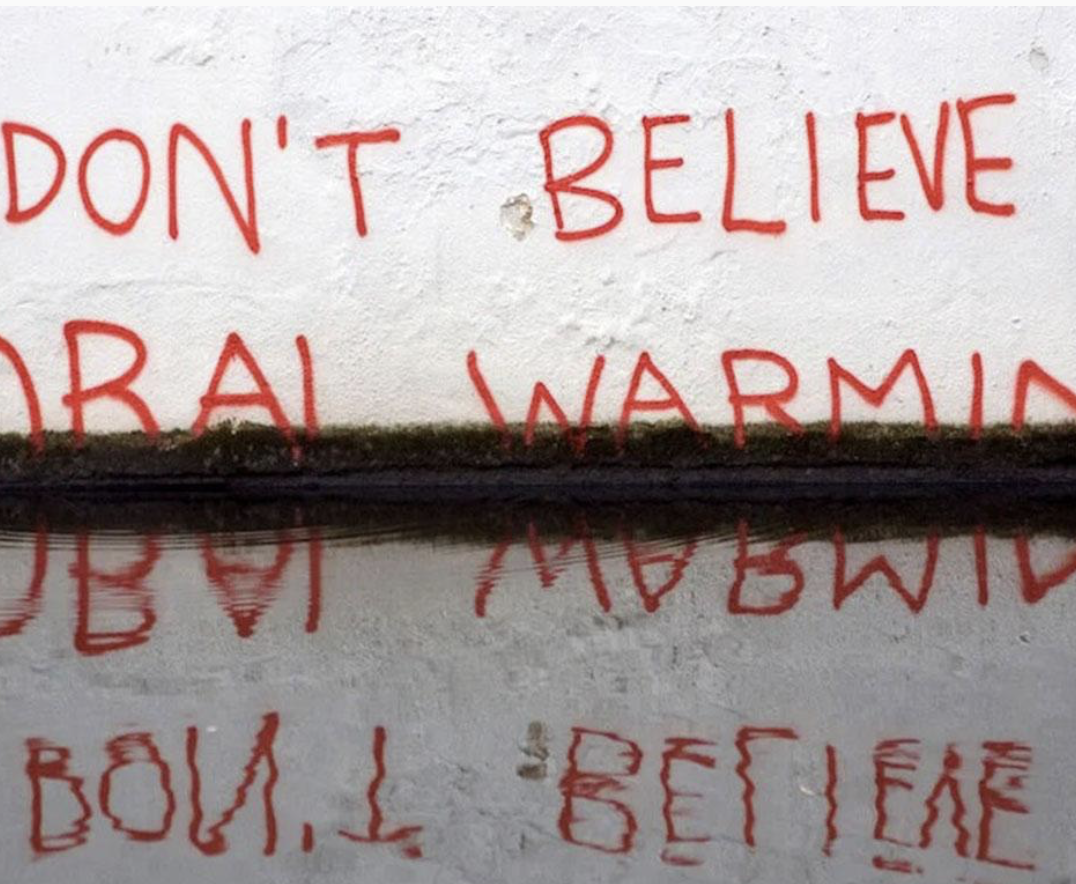 DON'T BELIEVE
OBAL WARMIN